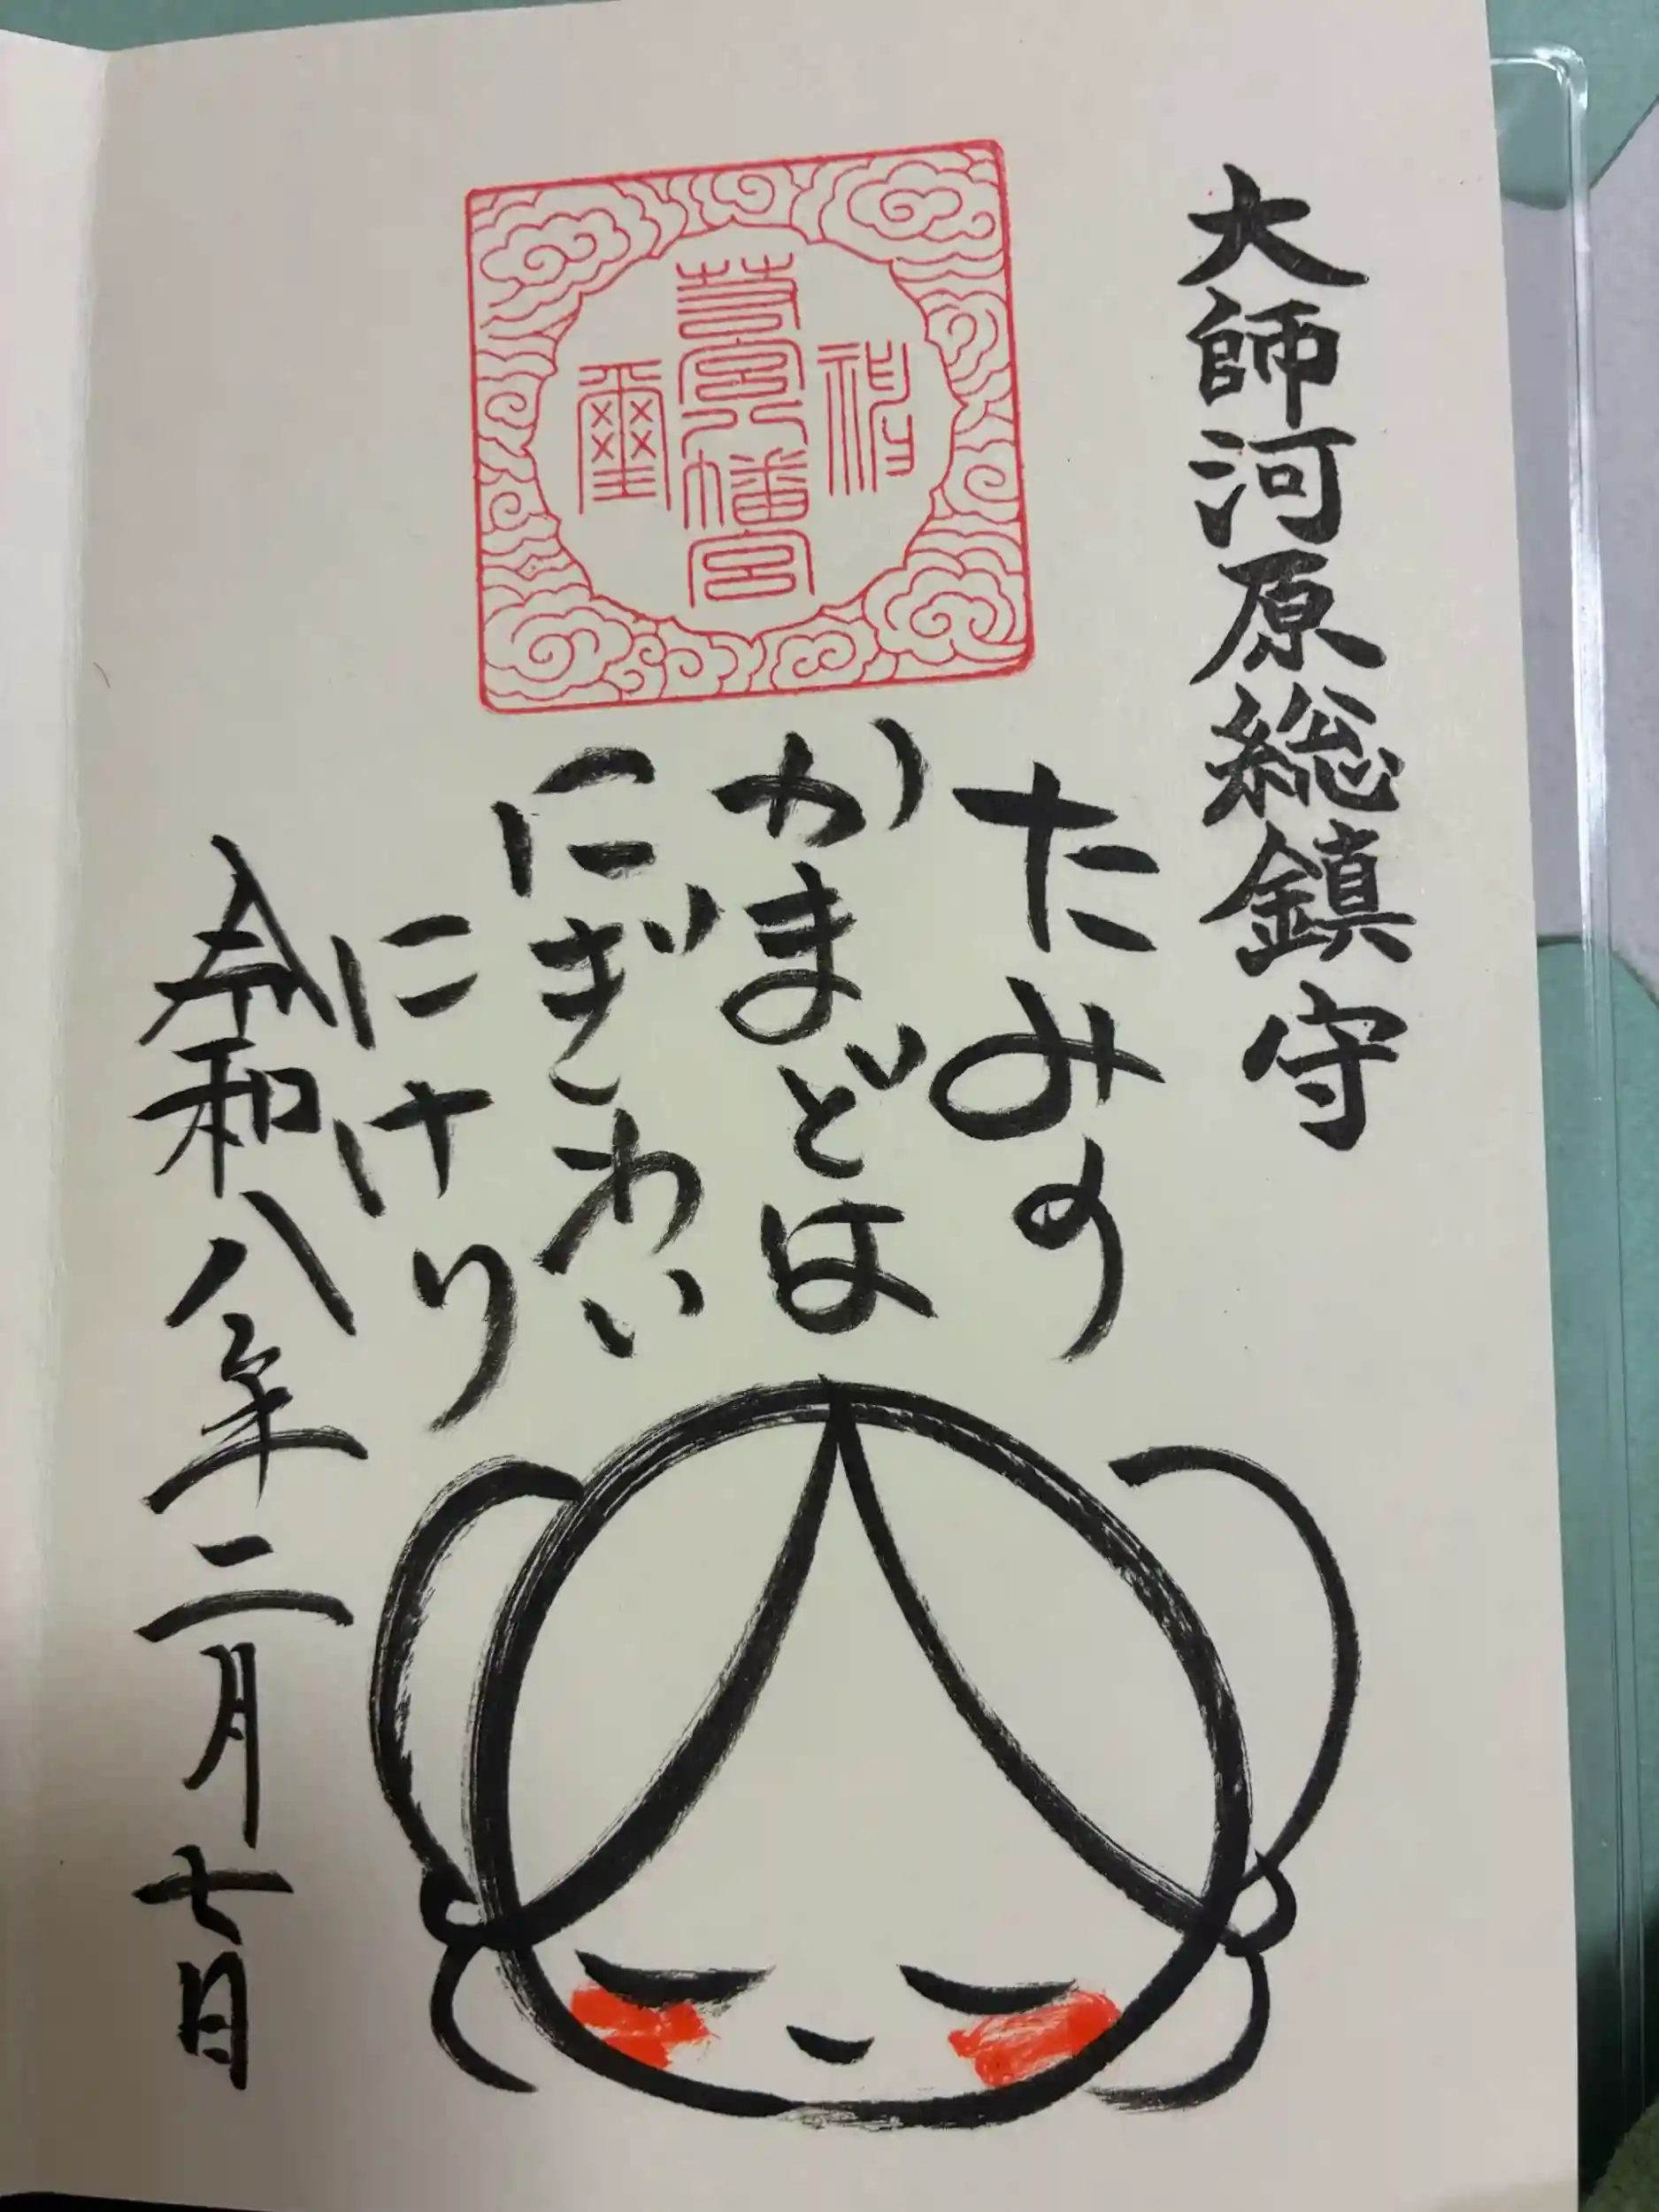 大師河原総鎮守
たみの
かまどは
にぎわい
にけり
令和八年二月七日
若宮八幡宮